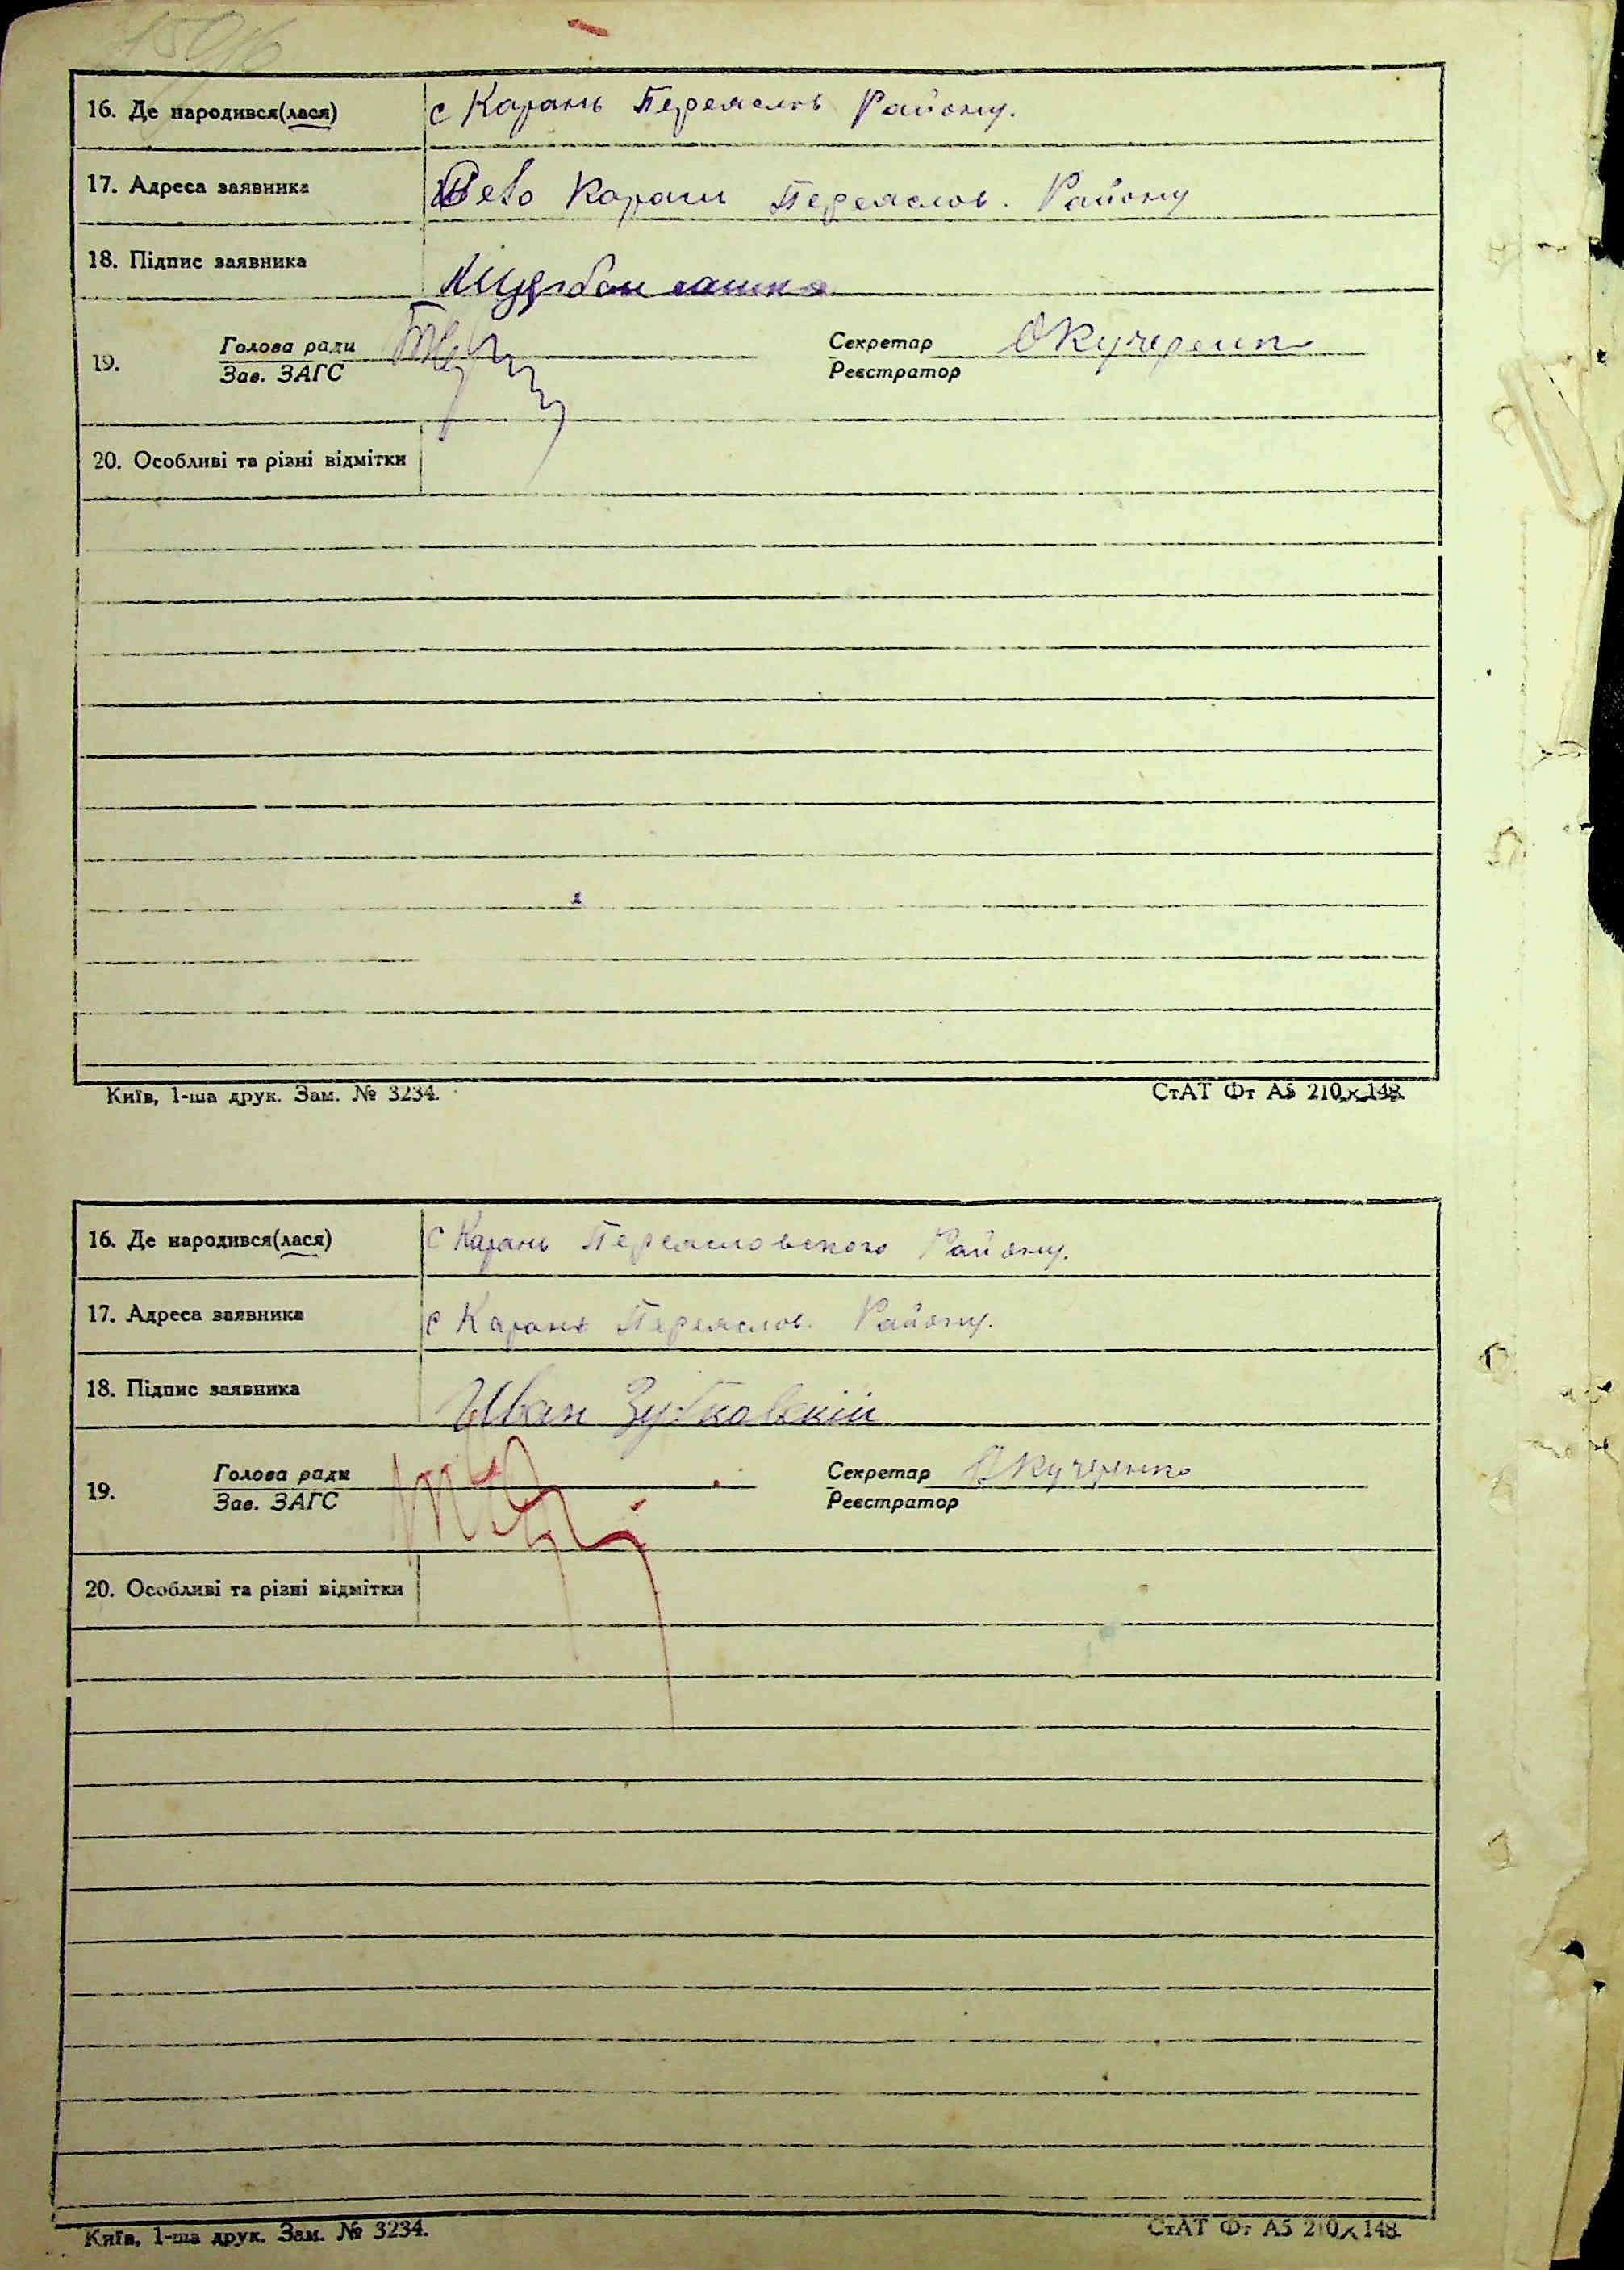 16. Де народився(лася) с Карань Переяслов Району.
17. Адреса заявника Село Карань Переяслов. Району
18. Підпис заявника
19. Голова ради Секретар ОКучеренко
Зав. ЗАГС Реєстратор
20. Особливі та різні відмітки
Київ, 1-ша друк. Зам. № 3234. СтАТ Фт А5 210×148.
16. Де народився(лася) с Карань Переясловского Району.
17. Адреса заявника с Карань Переяслов. Району.
18. Підпис заявника Иван Зубковский
19. Голова ради Секретар ОКучеренко
Зав. ЗАГС Реєстратор
20. Особливі та різні відмітки
Київ, 1-ша друк. Зам. № 3234. СтАТ Фт А5 210×148.